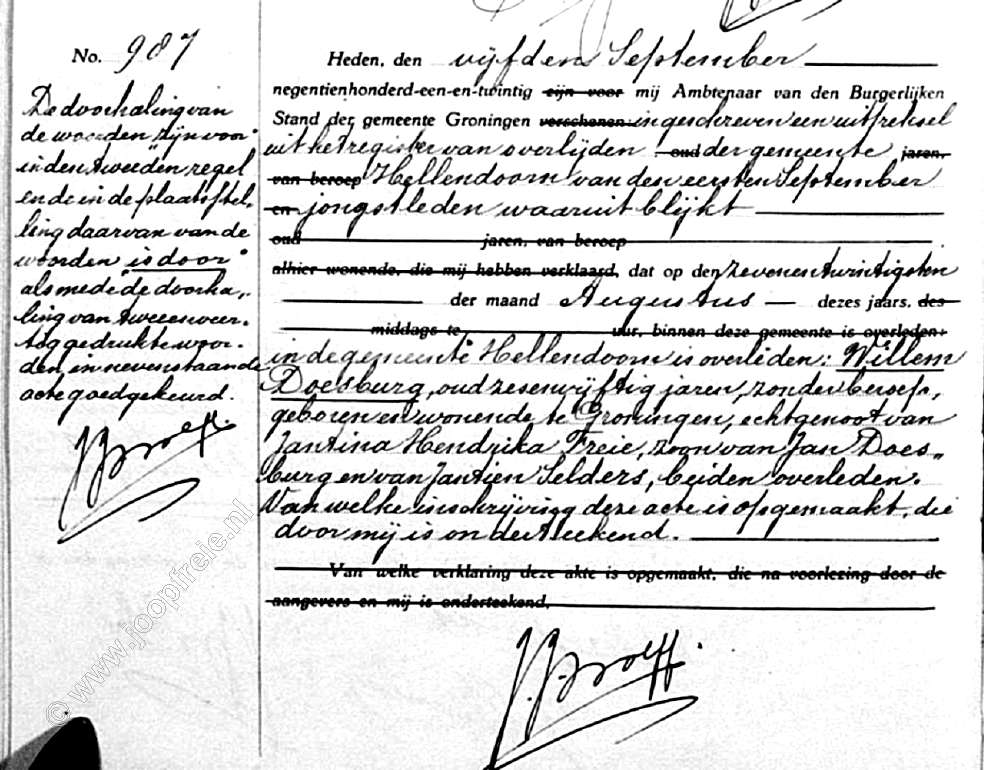 No. 987
De doorhaling van
de woorden „zijn voor"
in den tweeden regel
en de in de plaatsstel„
ling daarvan van de
woorden „is door"
alsmede de doorha„
ling van twee en veer„
tig gedrukte woor„
den, in nevenstaande
acte goedgekeurd.
Heden, den vijfden September
negentienhonderd-een-en-twintig zijn voor mij Ambtenaar van den Burgerlijken
Stand der gemeente Groningen verschenen: ingeschreven een uittreksel
uit het register van overlijden oud der gemeente jaren,
van beroep Hellendoorn van den eersten September
en jongstleden waaruit blijkt
oud jaren, van beroep
alhier wonende, die mij hebben verklaard, dat op den zeven en twintigsten
der maand Augustus dezes jaars, des
middags te uur, binnen deze gemeente is overleden:
in de gemeente Hellendoorn is overleden: Willem
Doesburg, oud zes en vijftig jaren, zonder beroep,
geboren en wonende te Groningen, echtgenoot van
Jantina Hendrika Freie, zoon van Jan Does„
burg en van Jantien Selders, beiden overleden.
Van welke inschrijving deze acte is opgemaakt, die
door mij is onderteekend.
Van welke verklaring deze akte is opgemaakt, die na voorlezing door de
aangevers en mij is onderteekend.
© www.joopfreie.nl